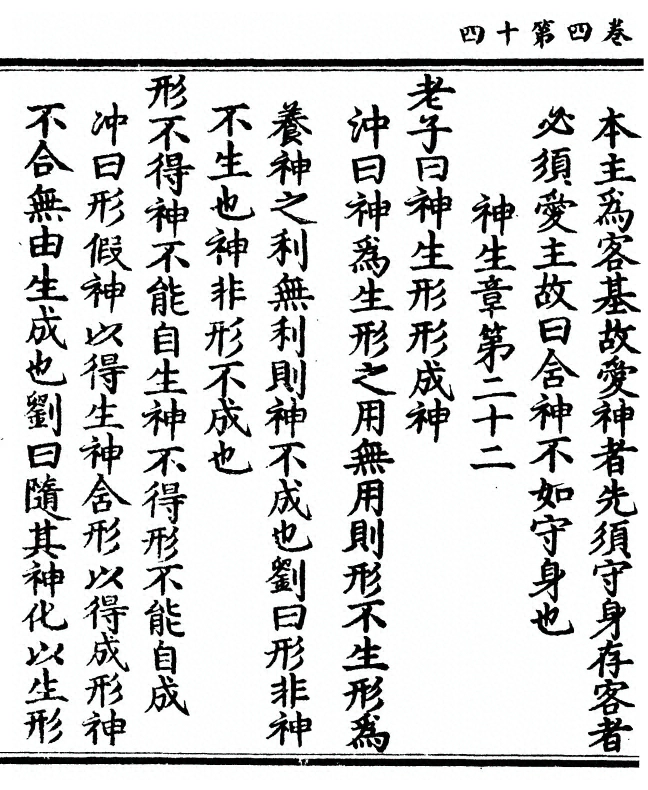 卷四第十四
本主爲客基故愛神者先須守身存客者
必須愛主故曰舍神不如守身也
神生章第二十二
老子曰神生形形成神
沖曰神爲生形之用無用則形不生形爲
養神之利無利則神不成也劉曰形非神
不生也神非形不成也
形不得神不能自生神不得形不能自成
沖曰形假神以得生神舍形以得成形神
不合無由生成也劉曰隨其神化以生形